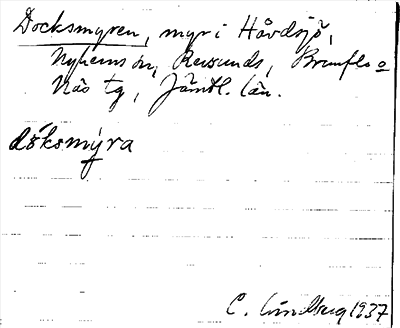 Docksmyren, myr i Håvdsjö,
Nyhems sn, Revsunds, Brunflo o
Näs tg, Jämtl. län.
dóksmýra
C. Lindberg 1937